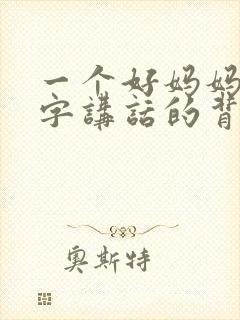 一个好妈妈
字講話的背
奥斯特